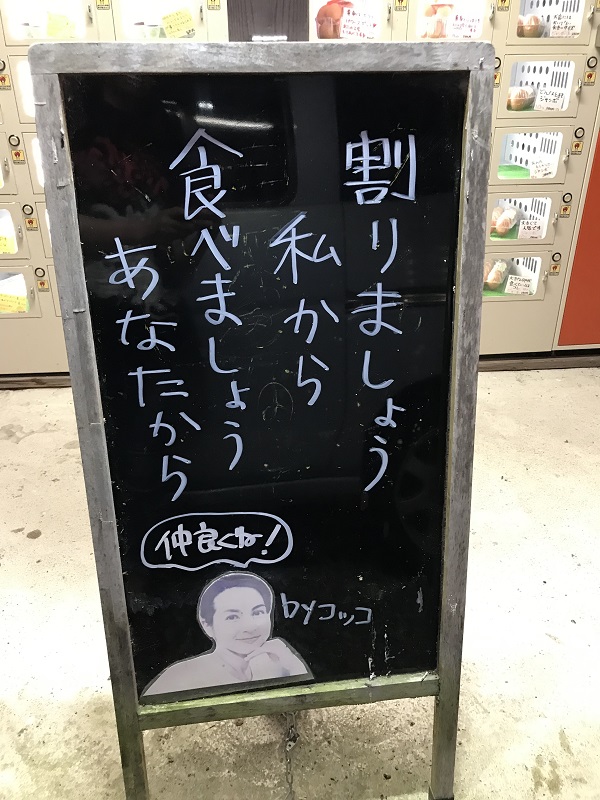 割りましょう
私から
食べましょう
あなたから
仲良くね!
byコッコ